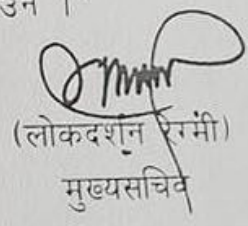 उन ।
(लोकदर्शन रेग्मी)
मुख्यसचिव